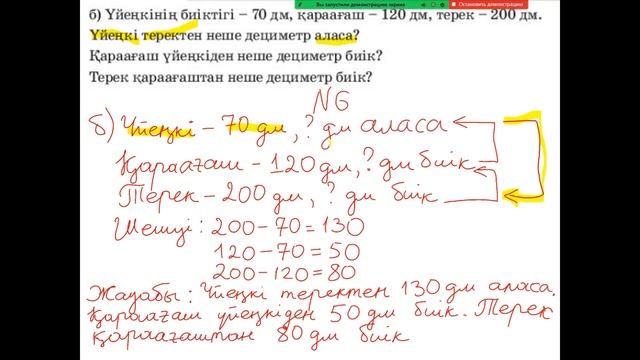 Вы запустили демонстрацию экрана
Остановить демонстрацию
б) Үйеңкінің биіктігі – 70 дм, қараағаш – 120 дм, терек – 200 дм.
Үйеңкі теректен неше дециметр аласа?
Қараағаш үйеңкіден неше дециметр биік?
Терек қараағаштан неше дециметр биік?
N6
б) Үйеңкі – 70 дм, ? дм аласа
Қараағаш – 120 дм, ? дм биік
Терек – 200 дм, ? дм биік
Шешуі: 200 – 70 = 130
120 – 70 = 50
200 – 120 = 80
Жауабы: Үйеңкі теректен 130 дм аласа.
Қараағаш үйеңкіден 50 дм биік. Терек
қараағаштан 80 дм биік